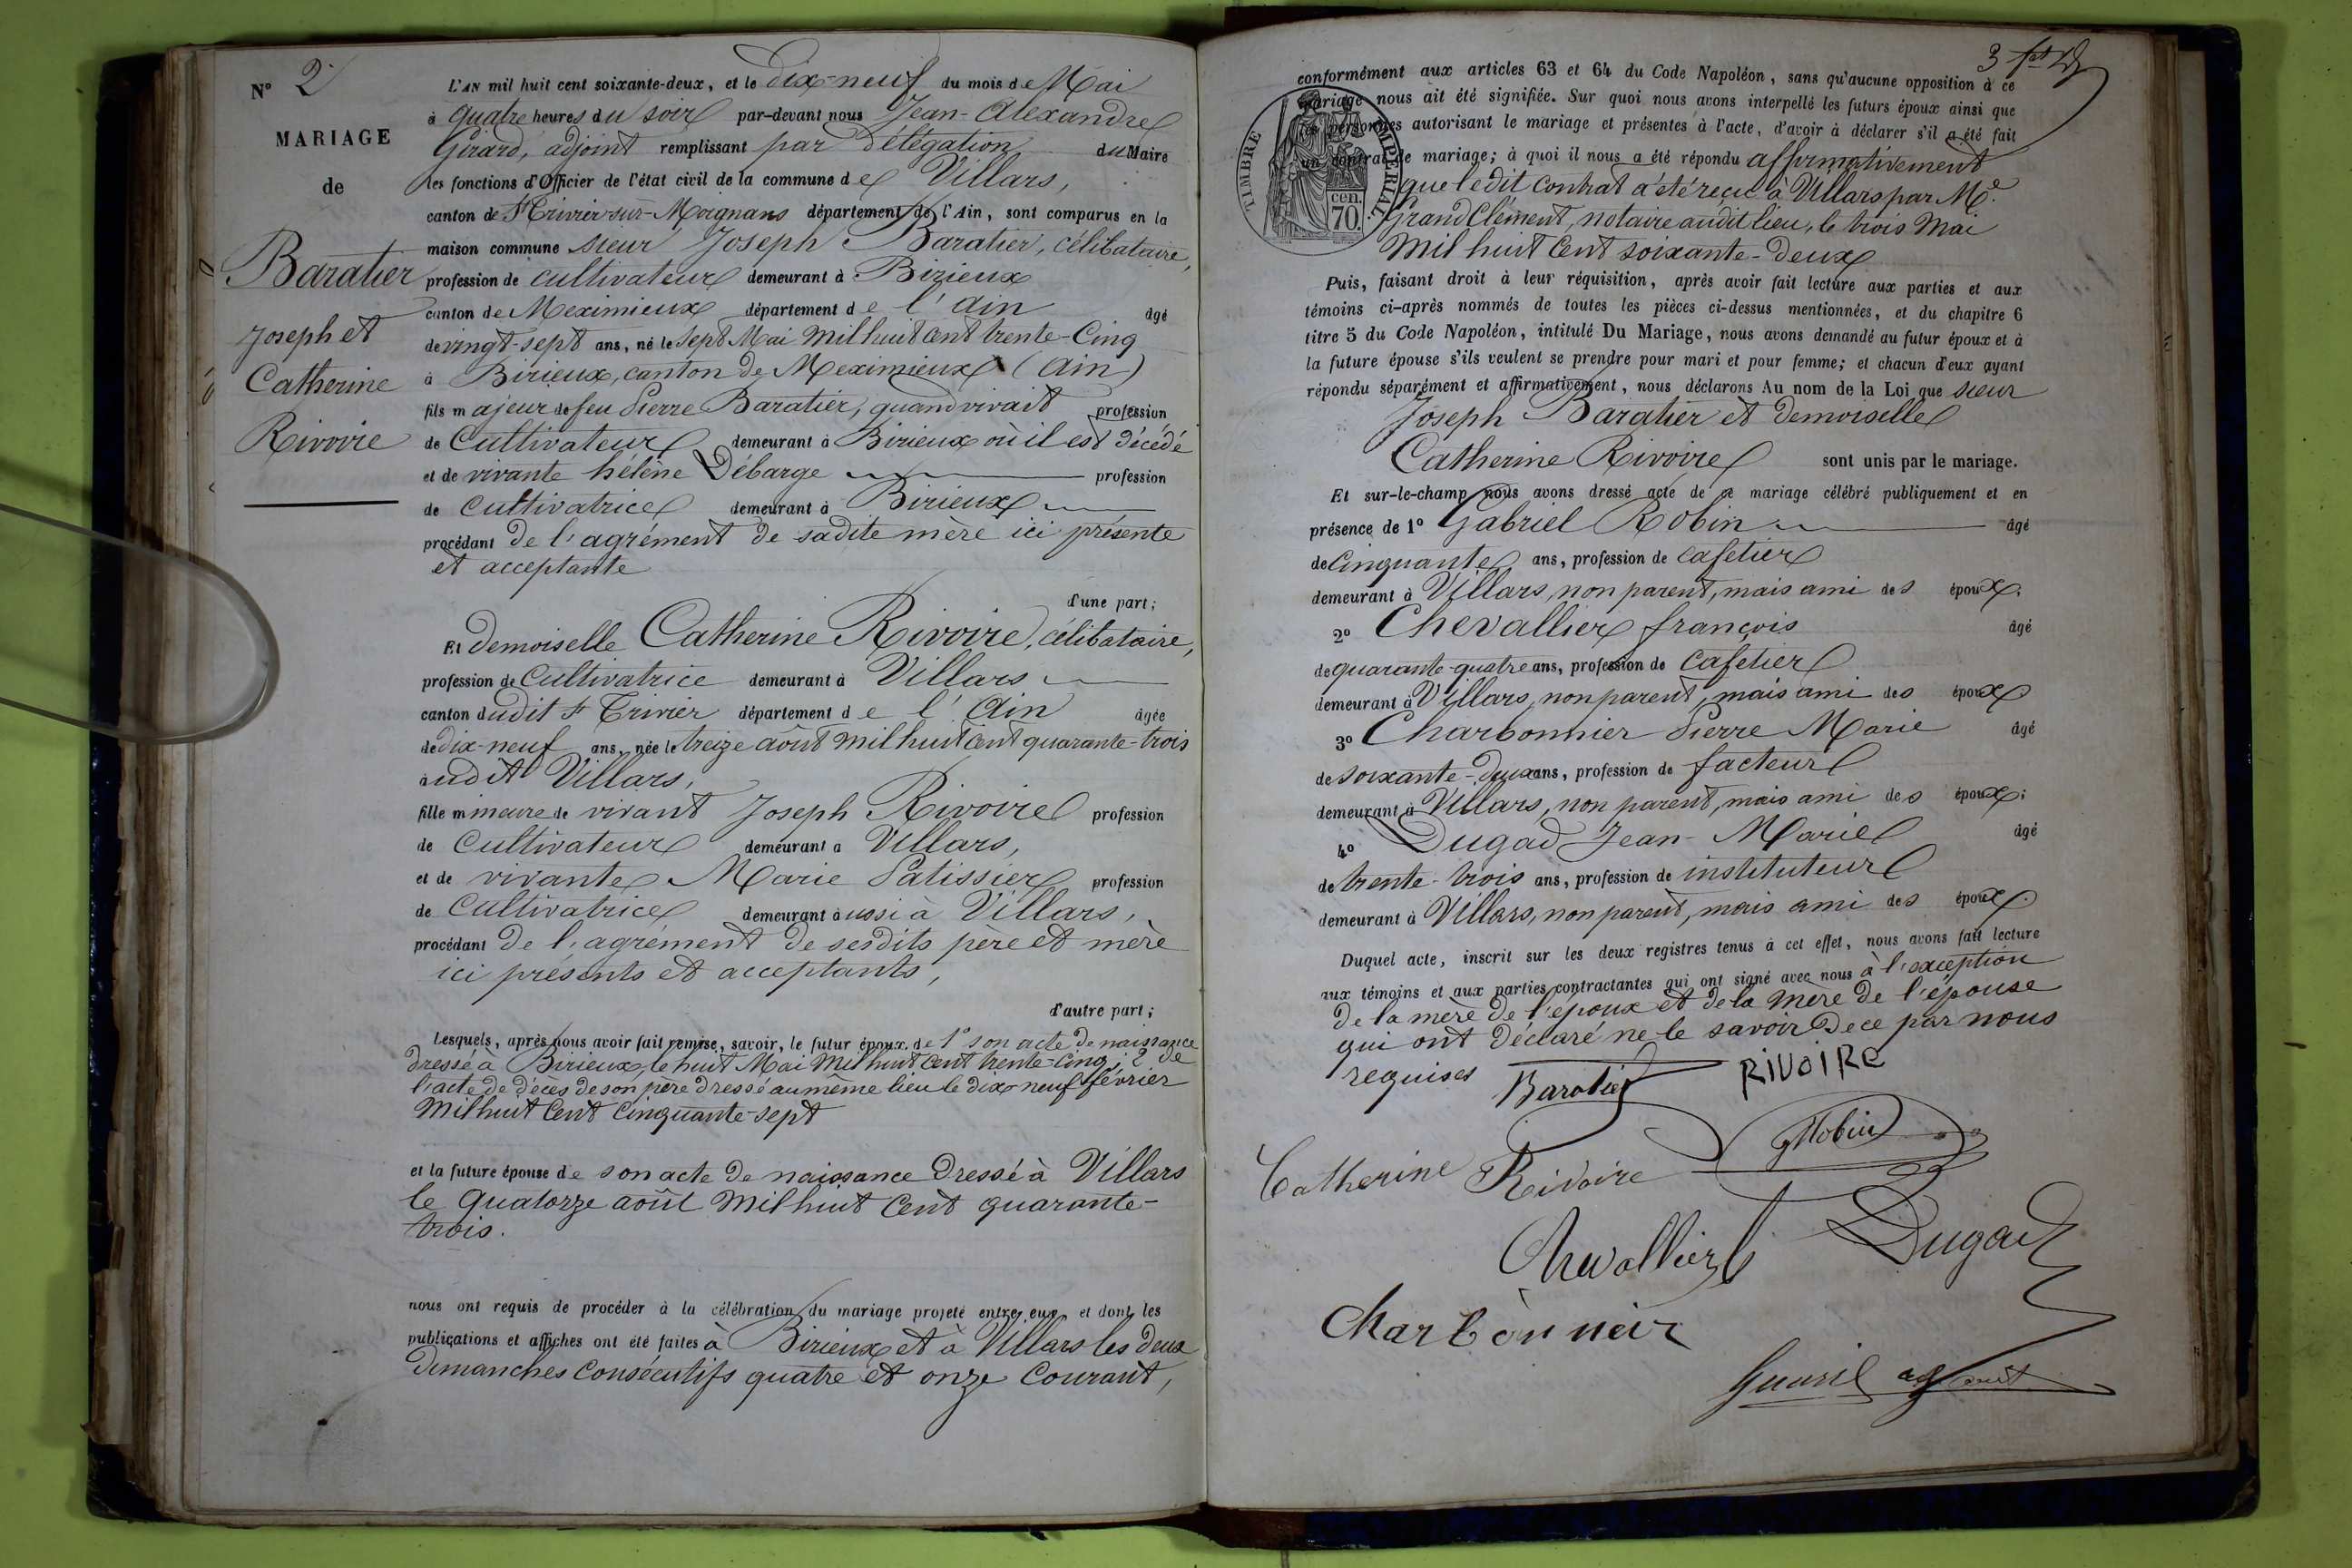 N° 2
MARIAGE
de
Baratier
Joseph et
Catherine
Rivoire
L'AN mil huit cent soixante-deux, et le dix-neuf du mois de Mai
à quatre heures du soir par-devant nous Jean-Alexandre
Girard, adjoint remplissant par délégation du Maire
les fonctions d'Officier de l'état civil de la commune de Villars,
canton de St Trivier-sur-Moignans département de l'Ain, sont comparus en la
maison commune sieur Joseph Baratier, célibataire,
profession de cultivateur demeurant à Birieux
canton de Meximieux département de l'Ain âgé
de vingt-sept ans, né le sept Mai mil huit cent trente-cinq
à Birieux, canton de Meximieux (Ain)
fils majeur de feu Pierre Baratier, quand vivait profession
de Cultivateur demeurant à Birieux où il est décédé
et de vivante hélène Débarge profession
de cultivatrice demeurant à Birieux
procédant de l'agrément de sadite mère ici présente
et acceptante
d'une part;
Et demoiselle Catherine Rivoire, célibataire,
profession de Cultivatrice demeurant à Villars
canton dudit St Trivier département de l'Ain âgée
de dix-neuf ans, née le treize août mil huit cent quarante-trois
audit Villars,
fille mineure de vivant Joseph Rivoire profession
de Cultivateur demeurant à Villars,
et de vivante Marie Patissier profession
de Cultivatrice demeurant aussi à Villars,
procédant de l'agrément de sesdits père et mère
ici présents et acceptants,
d'autre part;
Lesquels, après nous avoir fait remise, savoir, le futur époux de 1° son acte de naissance
dressé à Birieux, le huit Mai mil huit cent trente-cinq; 2° de
l'acte de décès de son père dressé au même lieu le dix-neuf février
mil huit cent cinquante-sept
et la future épouse de son acte de naissance dressé à Villars
le quatorze août mil huit cent quarante-
trois.
nous ont requis de procéder à la célébration du mariage projeté entre eux, et dont les
publications et affiches ont été faites à Birieux et à Villars les deux
dimanches consécutifs quatre et onze courant,
3
conformément aux articles 63 et 64 du Code Napoléon, sans qu'aucune opposition à ce
mariage nous ait été signifiée. Sur quoi nous avons interpellé les futurs époux ainsi que
les personnes autorisant le mariage et présentes à l'acte, d'avoir à déclarer s'il a été fait
un contrat de mariage; à quoi il nous a été répondu affirmativement
que ledit contrat a été reçu à Villars par Me
Grand Clément, notaire audit lieu, le trois Mai
mil huit cent soixante-deux
TIMBRE IMPÉRIAL.
cen.
70.
Puis, faisant droit à leur réquisition, après avoir fait lecture aux parties et aux
témoins ci-après nommés de toutes les pièces ci-dessus mentionnées, et du chapitre 6
titre 5 du Code Napoléon, intitulé Du Mariage, nous avons demandé au futur époux et à
la future épouse s'ils veulent se prendre pour mari et pour femme; et chacun d'eux ayant
répondu séparément et affirmativement, nous déclarons Au nom de la Loi que sieur
Joseph Baratier et demoiselle
Catherine Rivoire sont unis par le mariage.
Et sur-le-champ nous avons dressé acte de ce mariage célébré publiquement et en
présence de 1° Gabriel Robin âgé
de cinquante ans, profession de cafetier
demeurant à Villars, non parent, mais ami des époux.
2° Chevallier françois âgé
de quarante-quatre ans, profession de cafetier
demeurant à Villars, non parent, mais ami des époux
3° Charbonnier Pierre Marie âgé
de soixante-deux ans, profession de facteur
demeurant à Villars, non parent, mais ami des époux;
4° Dugad Jean-Marie âgé
de trente-trois ans, profession de instituteur
demeurant à Villars, non parent, mais ami des époux.
Duquel acte, inscrit sur les deux registres tenus à cet effet, nous avons fait lecture
aux témoins et aux parties contractantes qui ont signé avec nous à l'exception
de la mère de l'époux et de la mère de l'épouse
qui ont déclaré ne le savoir de ce par nous
requises
Baratier
RIVOIRe
GRobin
Catherine Rivoire
Chevallier
Dugad
Charbonneir